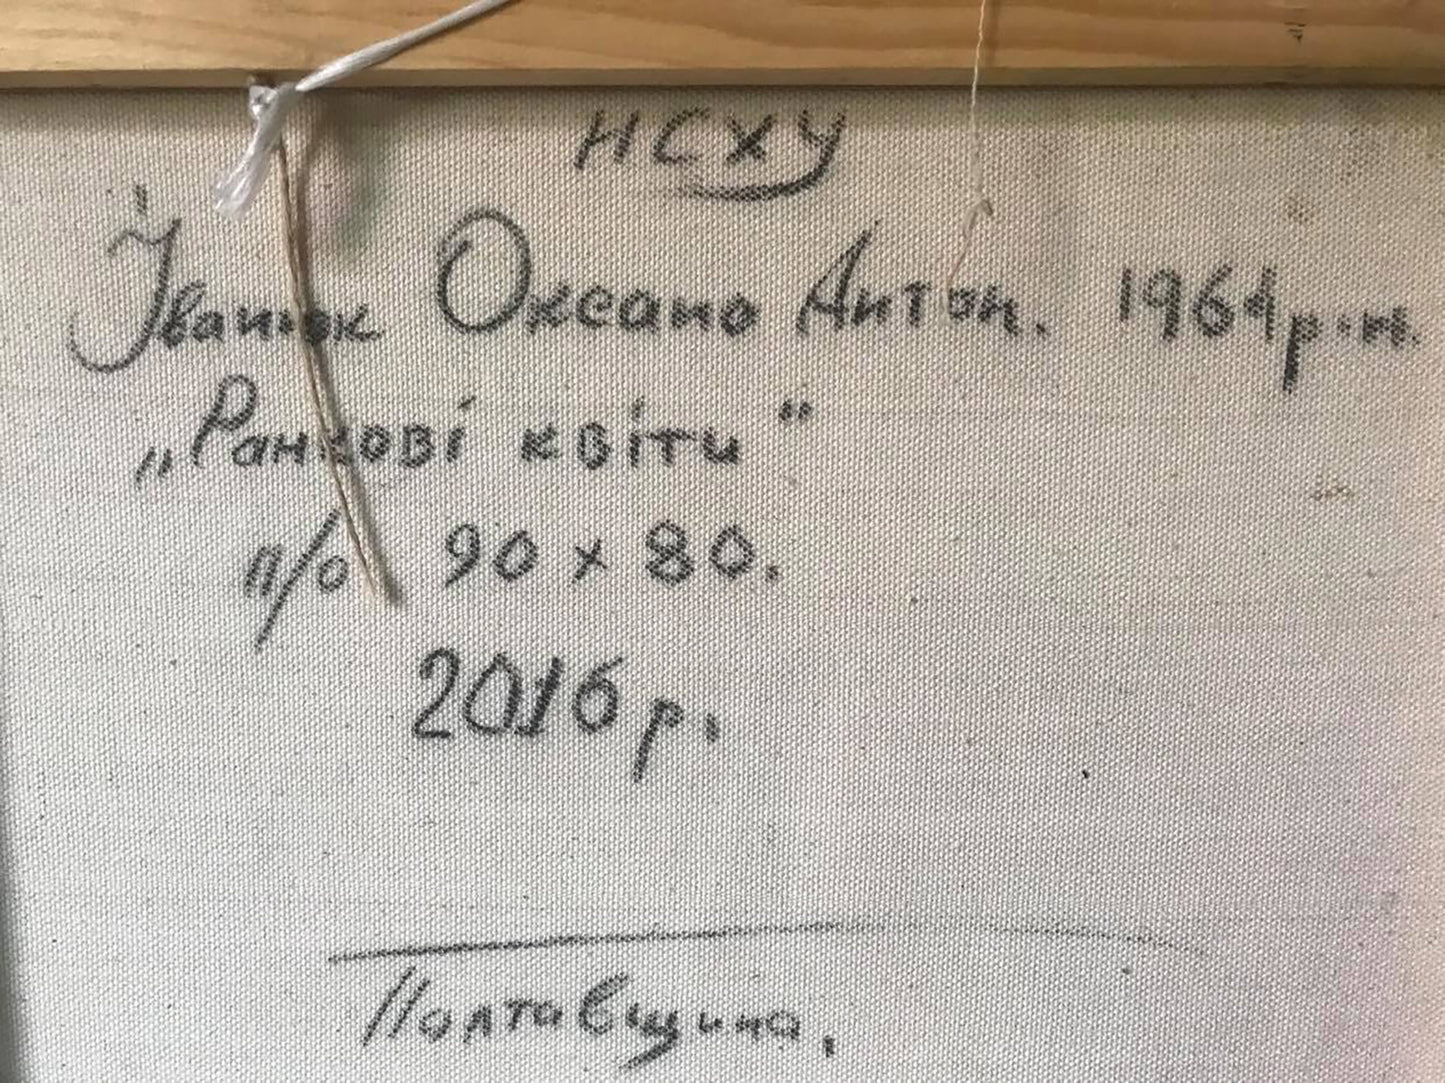 НСХУ
Іванюк Оксана Антон. 1964 р.н.
„Ранкові квіти"
п/о 90 х 80.
2016 р.
Полтавщина.